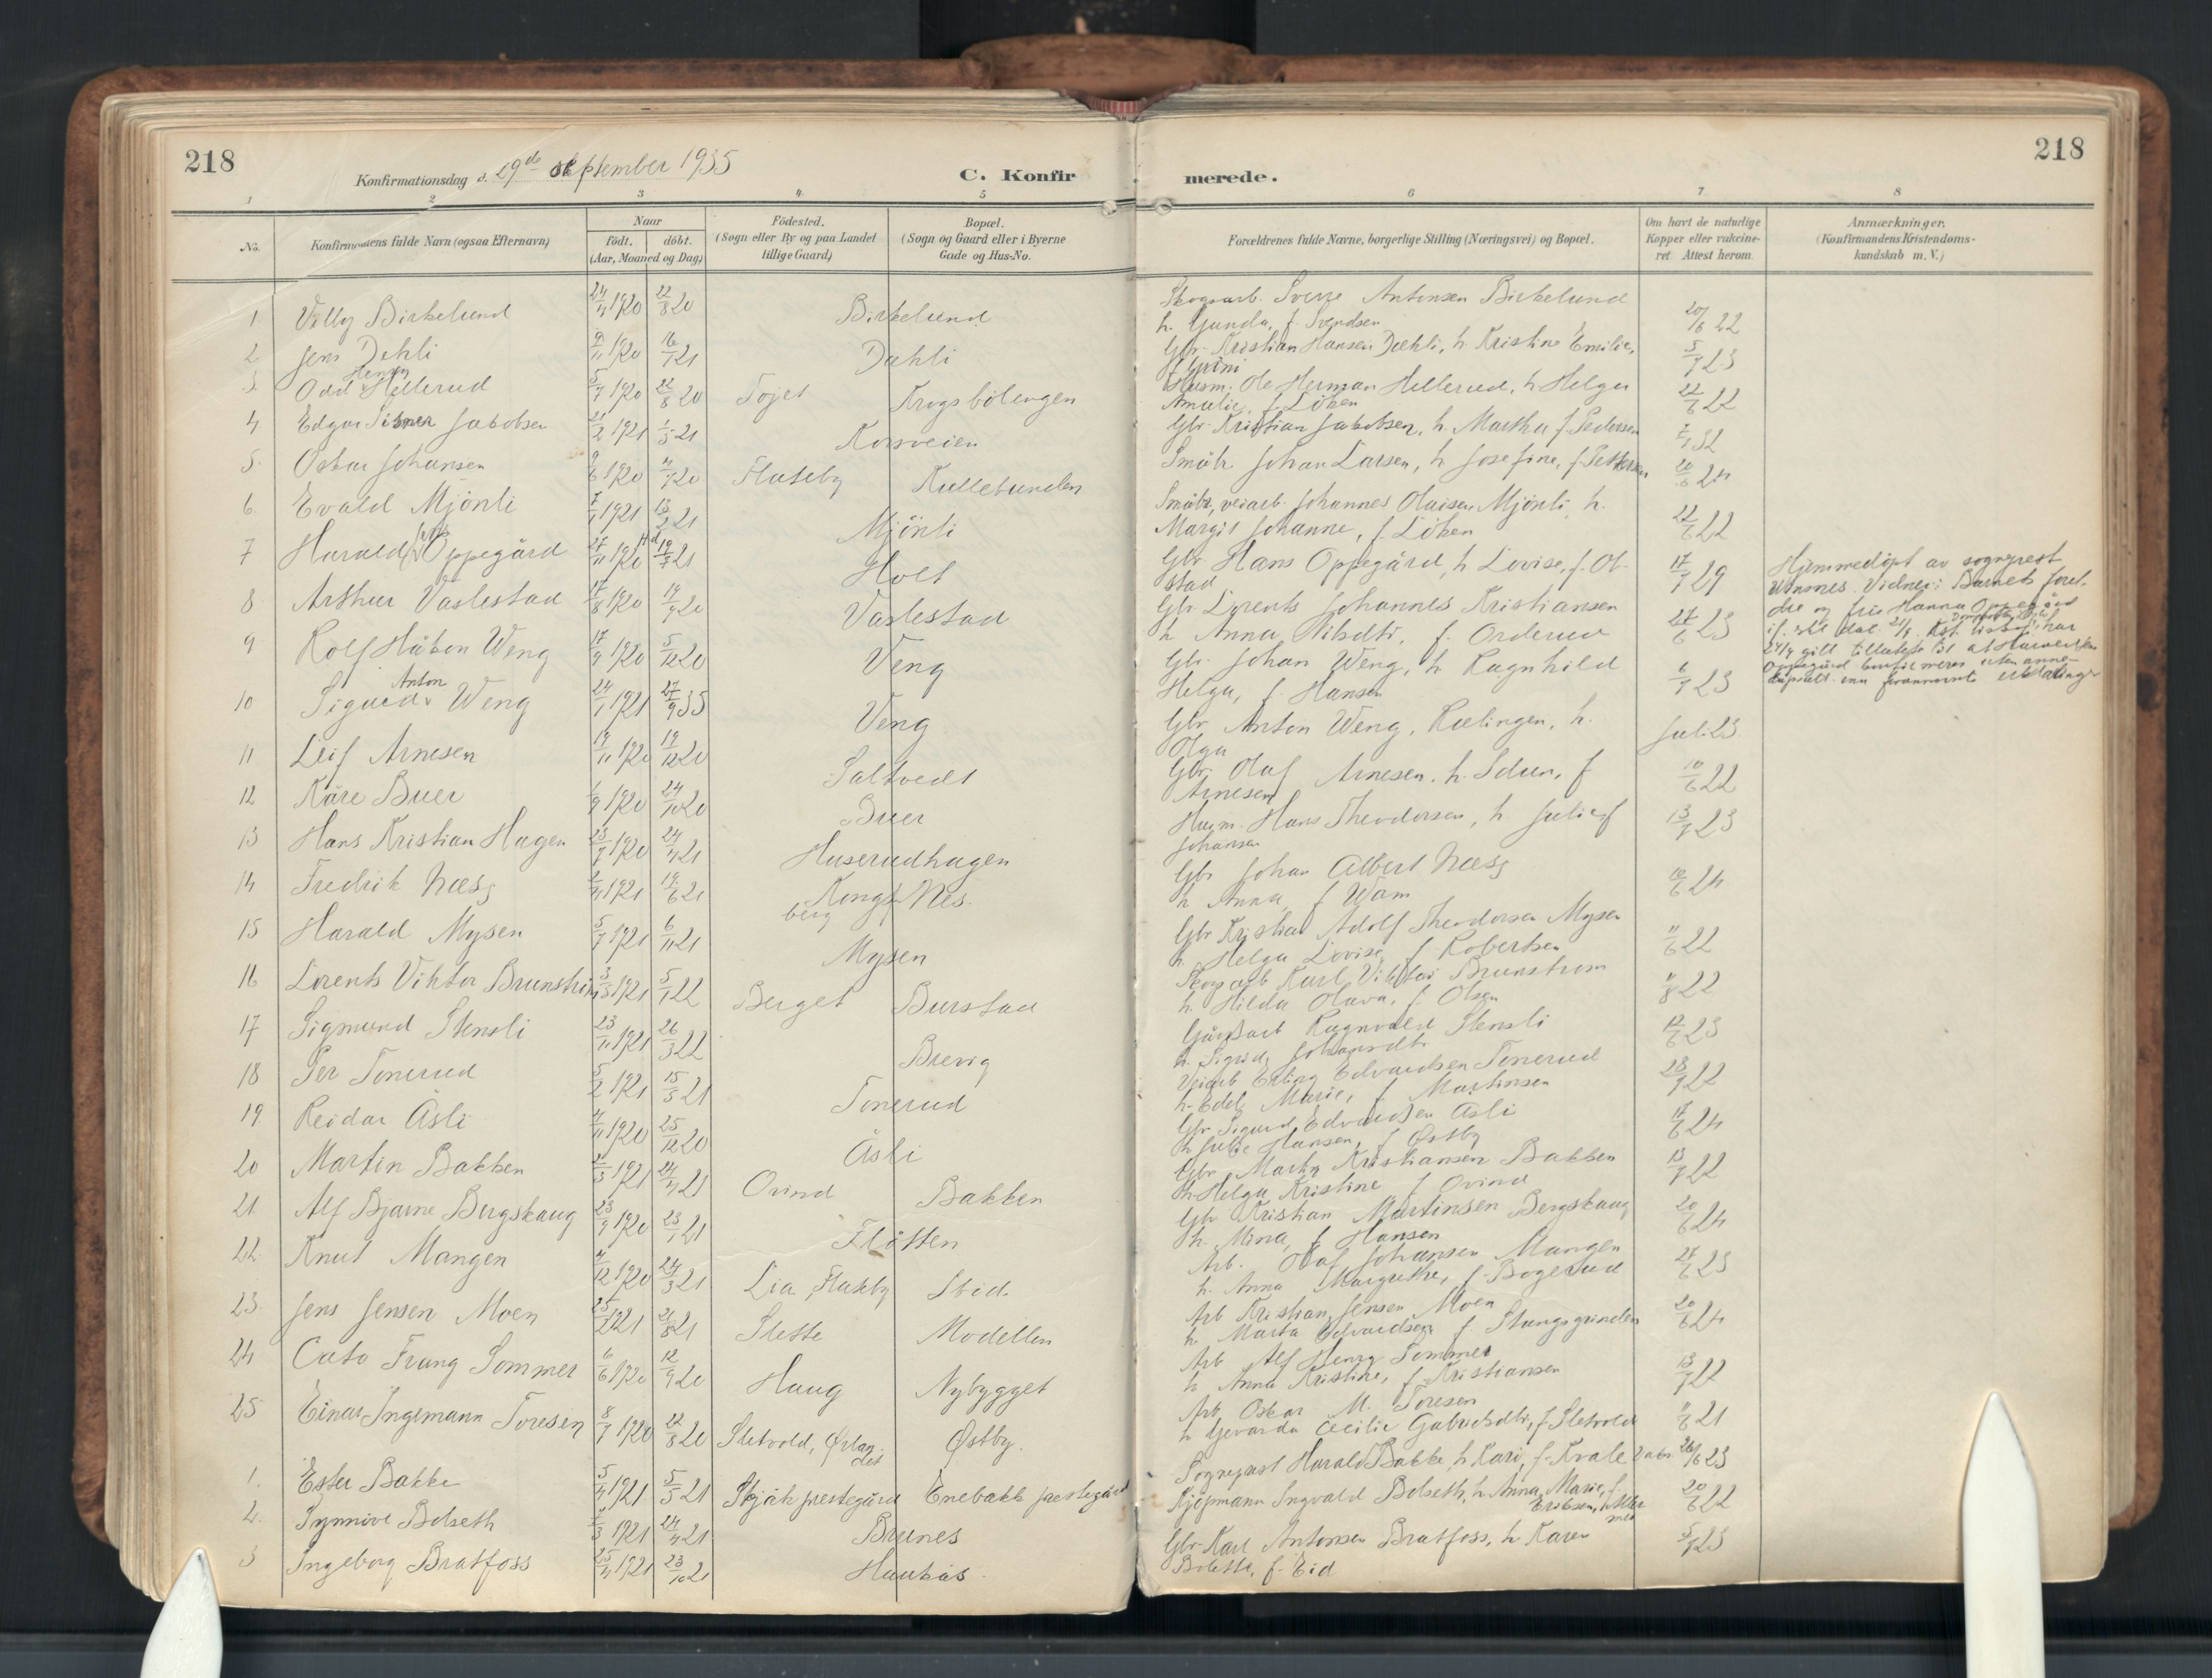 218
Konfirmationsdag d. 29de september 1935
C. Konfirmerede.
218
1 2 3 4 5 6 7 8
No.
Konfirmandens fulde Navn (ogsaa Efternavn)
Naar
født. døbt.
(Aar, Maaned og Dag)
Fødested.
(Sogn eller By og paa Landet
tillige Gaard)
Bopæl.
(Sogn og Gaard eller i Byerne
Gade og Hus-No.
Forældrenes fulde Navne, borgerlige Stilling (Næringsvei) og Bopæl.
Om havt de naturlige
Kopper eller vakcine-
ret Attest herom.
Anmærkninger.
(Konfirmandens Kristendoms-
kundskab m. V.)
1. Villy Birkelund 24/4 1920 22/8 20 Birkelund Skogsarb. Sverre Antonsen Birkelund
h. Gunda, f Svendsen 20/6 22
2 Jens Dæhli 9/11 1920 16/1 21 Dæhli Gbr. Kristian Hansen Dæhli, h. Kristine Emilie,
f Grini 5/7 23
3. Odd Henry Hellerud 5/7 1920 22/8 20 Tojet Krogsbölengen Husm. Ole Herman Hellerud, h Helga
Amalie, f. Löken 22/6 22
4 Edgar Jakobsen 1921 21 Korsveien Gbr. Kristian Jakobsen, h. Martha f. Pedersen
5. Oskar Johansen 1920 20 Flateby Kullebunden Småbr Johan Larsen, h Josefine, f Pettersen 20/6 24
6. Evald Mjönli 1921 13/2 21 Mjönli Småbr, veiarb. Johannes Olaisen Mjönli, h.
Margit Johanne, f. Löken 22/6 22
7 Harald Oppegård 27/11 1920 Hd 19/7 21 Holt Gbr Hans Oppegård, h Lovise, f. Ob-
stad 17/7 29 Hjemmedöpt av sogneprest
Utnsnes. Vidner: Barnets forel-
dre og frü Hanna Oppegård
8 Arthur Vaslestad 17/8 1920 19/9 20 Vaslestad Gbr Lorents Johannes Kristiansen
h Anna Nilsdtr. f. Orderud 27/6 23
9 Rolf Håkon Weng 17/9 1920 5/12 20 Veng Gbr. Johan Weng, h Ragnhild
Helga, f. Hansen 6/7 23
10 Sigurd Anton Weng 24/1 1921 27/9 35 Veng Gbr Anton Weng, Rælingen, h.
Olga Juli 23
11 Leif Arnesen 19/11 1920 19/12 20 Saltvedt Gbr. Olaf Arnesen. h. Idun, f
Arnesen 10/6 22
12 Kåre Buer 1920 24/10 20 Buer Husm. Hans Theodorsen, h. Julie f
Johansen 13/7 23
13 Hans Kristian Hagen 23/7 1920 24/4 21 Huserudhagen Gbr Johan Albert Næss
14 Fredrik Næss 1921 19/6 21 Kongsberg Nes. h Anna, f Wam 10/6 24
15 Harald Mysen 5/7 1921 6/11 21 Mysen Gbr Kristian Adolf Theodorsen Mysen
h. Helga Lovise, f. Robertsen 11/6 22
16 Lorents Viktor Brunström 3/5 1921 5/1 22 Berget Burstad Skogsarb Karl Viktor Brunstrøm
h. Hilda Olava, f. Olsen 11/8 22
17 Sigmund Stensli 23/11 1921 26/3 22 Brevig Gårdsarb Ragnvald Stensli
h. Sigrid, Johansdtr. 12/6 23
18 Per Tonerud 5/2 1921 15/5 21 Tonerud Veiarb Erling Edvardsen Tonerud
h. Edel Marie, f Martinsen 28/9 22
19 Reidar Åsli 4/11 1920 25/12 20 Åsli Gbr Sigurd Edvardsen Åsli
h Julie Hansen, f Østby 17/6 24
20 Martin Bakken 1921 24/4 21 Ovind Bakken Gbr Martin Kristiansen Bakken
h. Helga Kristine f Ovind 13/7 22
21. Alf Bjarne Bergskaug 23/9 1920 23/1 21 Flåtten Gbr Kristian Martinsen Bergskaug
h. Mina, f Hansen 20/6 24
22. Knut Mangen 4/12 1920 24/3 21 Lia, Flateby Ibid. Arb. Olaf Johansen Mangen
h. Anna Margrethe, f. Bogerud 27/6 23
23. Jens Jensen Moen 25/2 1921 21/8 21 Slette Modellen Arb Kristian Jensen Moen
h Marta Edvardsen f Stangsgrinden 20/6 24
24 Cato Frang Sommer 6/6 1920 12/9 20 Haug Nybygget Arb Alf Henry Sommer
h Anna Kristine, f. Kristiansen 13/7 22
25 Einar Ingemann Toresen 8/7 1920 22/8 20 Sletvold, Ørlandet Østby. Arb Oskar M. Toresen
h Gevarda Cecilie Gabrielsdtr, f. Sletvold 11/6 21
1. Ester Bakke 5/4 1921 5/5 21 Skjåk prestegård Enebakk prestegård Sogneprest Harald Bakke, h Kari, f. Kvale 26/6 23
2. Synnöve Bolseth 1921 24/4 21 Brunes Kjøpmann Ingvald Bolseth, h Anna Marie, f.
Eriksen 20/6 22
3 Ingeborg Bratfoss 25/4 1921 23/10 21 Haukås. Gbr. Karl Antonsen Bratfoss, h Karen
Bolette, f. Eid 5/7 23